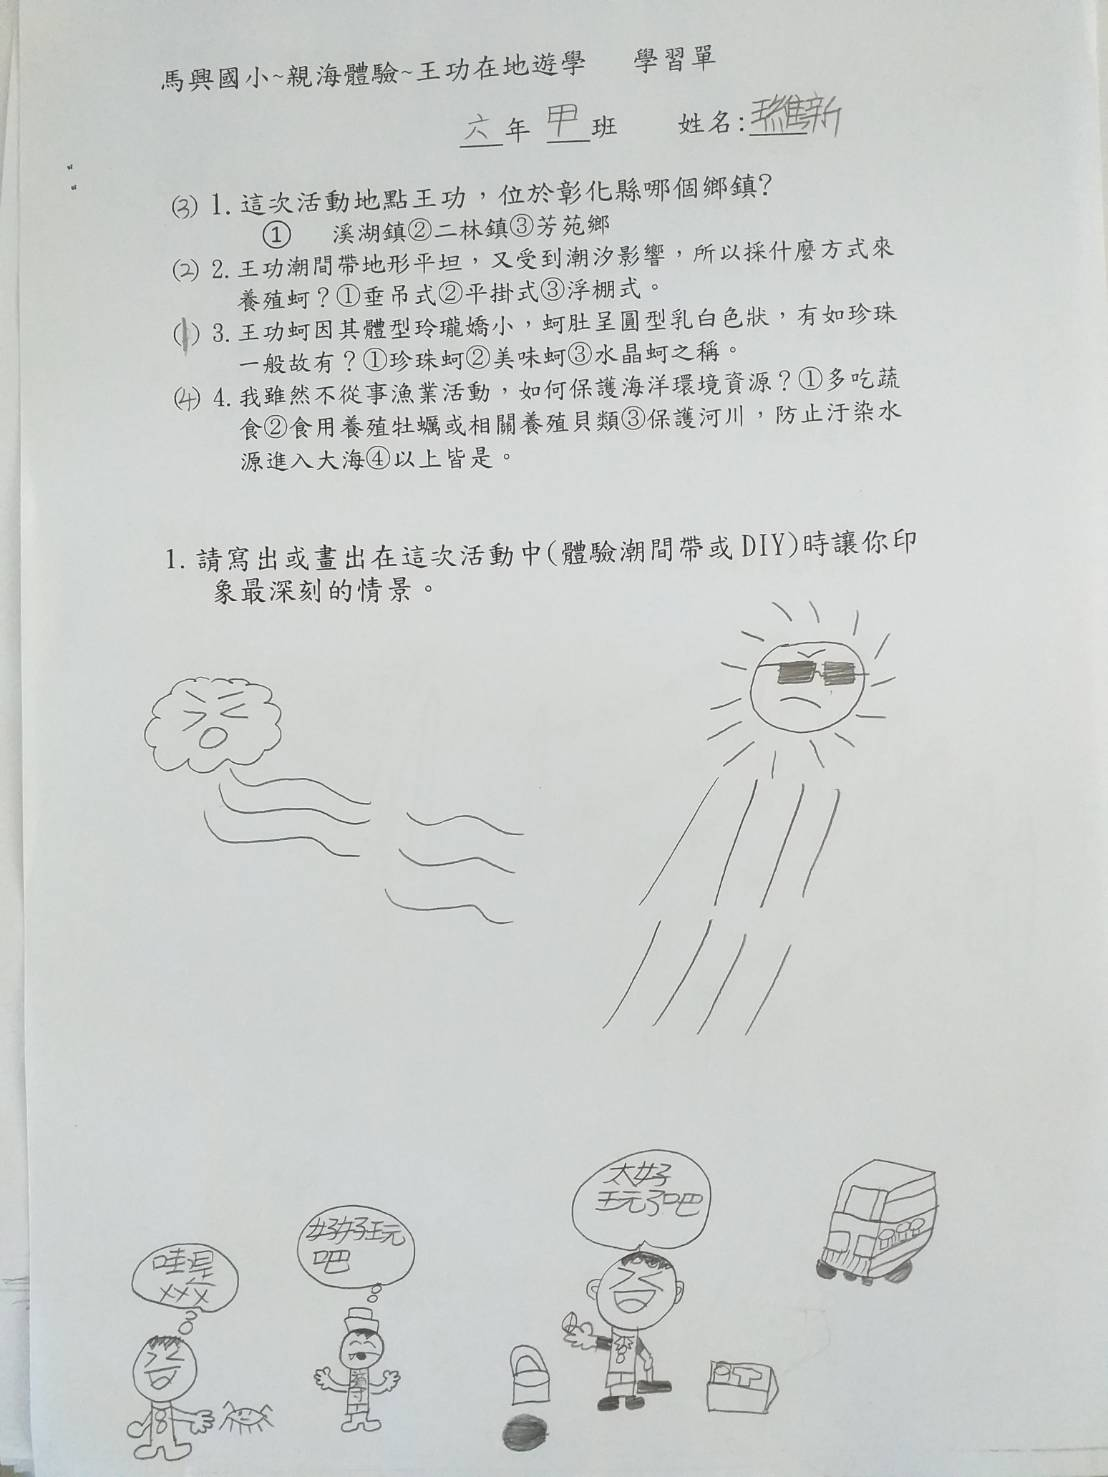 馬興國小~親海體驗~王功在地遊學 學習單
六年 甲班 姓名:
(3) 1. 這次活動地點王功，位於彰化縣哪個鄉鎮?
① 溪湖鎮②二林鎮③芳苑鄉
(2) 2. 王功潮間帶地形平坦，又受到潮汐影響，所以採什麼方式來
養殖蚵？①垂吊式②平掛式③浮棚式。
(1) 3. 王功蚵因其體型玲瓏嬌小，蚵肚呈圓型乳白色狀，有如珍珠
一般故有？①珍珠蚵②美味蚵③水晶蚵之稱。
(4) 4. 我雖然不從事漁業活動，如何保護海洋環境資源？①多吃蔬
食②食用養殖牡蠣或相關養殖貝類③保護河川，防止汙染水
源進入大海④以上皆是。
1. 請寫出或畫出在這次活動中(體驗潮間帶或 DIY)時讓你印
象最深刻的情景。
哇是
XXX
好好玩
吧
太好
玩了吧